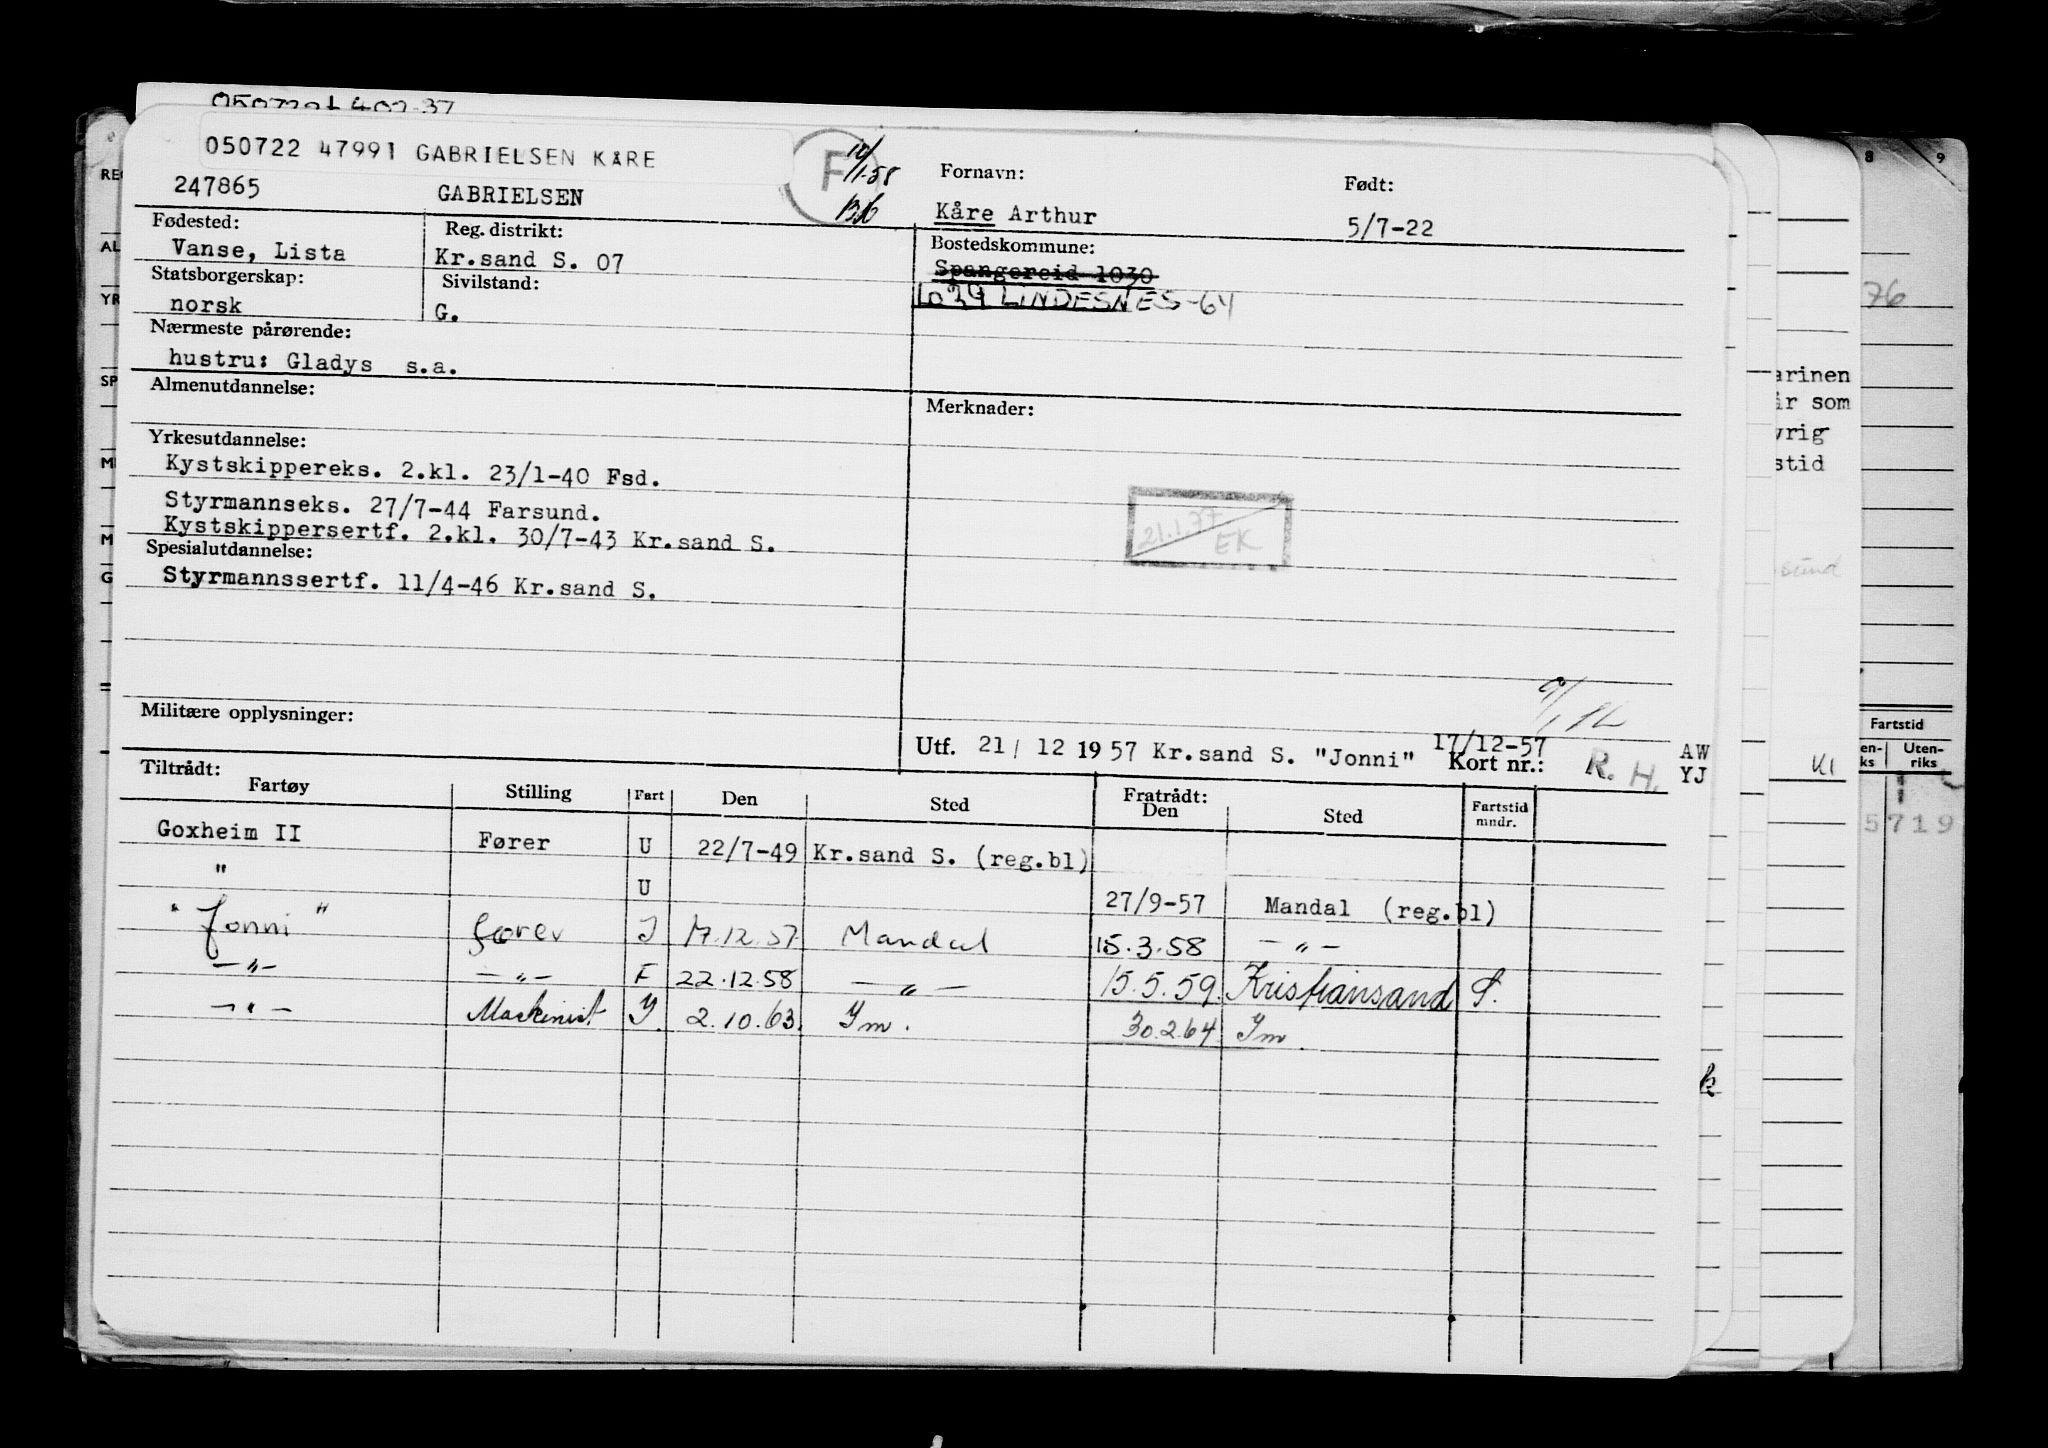 050722 47991 GABRIELSEN KÅRE
247865 GABRIELSEN
F
Fornavn:
Kåre Arthur
Født:
5/7-22
Fødested:
Vanse, Lista
Reg. distrikt:
Kr.sand S. 07
Bostedskommune:
Spangereid 1030
LINDESNES-64
Statsborgerskap:
norsk
Sivilstand:
G.
Nærmeste pårørende:
hustru: Gladys s.a.
Almenutdannelse:
Merknader:
Yrkesutdannelse:
Kystskippereks. 2.kl. 23/1-40 Fsd.
Styrmannseks. 27/7-44 Farsund.
Kystskippersertf. 2.kl. 30/7-43 Kr.sand S.
21.1.77
EK
Spesialutdannelse:
Styrmannssertf. 11/4-46 Kr.sand S.
Militære opplysninger:
Utf. 21/ 12 1957 Kr.sand S. "Jonni" 17/12-57
Kort nr.: R. H.
AW
YJ
Tiltrådt:
Fartøy Stilling Fart Den Sted Fratrådt: Den Sted Fartstid mndr.
Goxheim II Fører U 22/7-49 Kr.sand S. (reg.bl)
" U 27/9-57 Mandal (reg.bl)
"Jonni" fører J 17.12.57 Mandal 15.3.58 -"-
-"- -"- F 22.12.58 -"- 15.5.59. Kristiansand S.
-"- Maskinist J. 2.10.63. Ym. 30.2.64 Ym.
8 9
76
arinen
år som
vrig
stid
sund
Fartstid
en-
ks
Uten-
riks
KI
5719